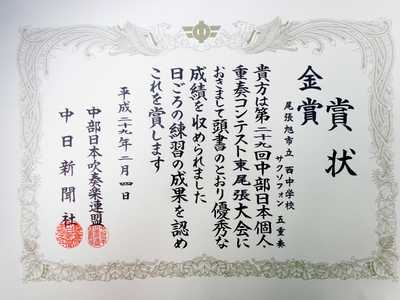 賞状
金賞
尾張旭市立 西中学校
サクソフォン 五重奏
貴方は第二十九回中部日本個人
重奏コンテスト東尾張大会に
おきまして頭書のとおり優秀な
成績を収められました
日ごろの練習の成果を認め
これを賞します
平成二十九年二月四日
中部日本吹奏楽連盟
中日新聞社